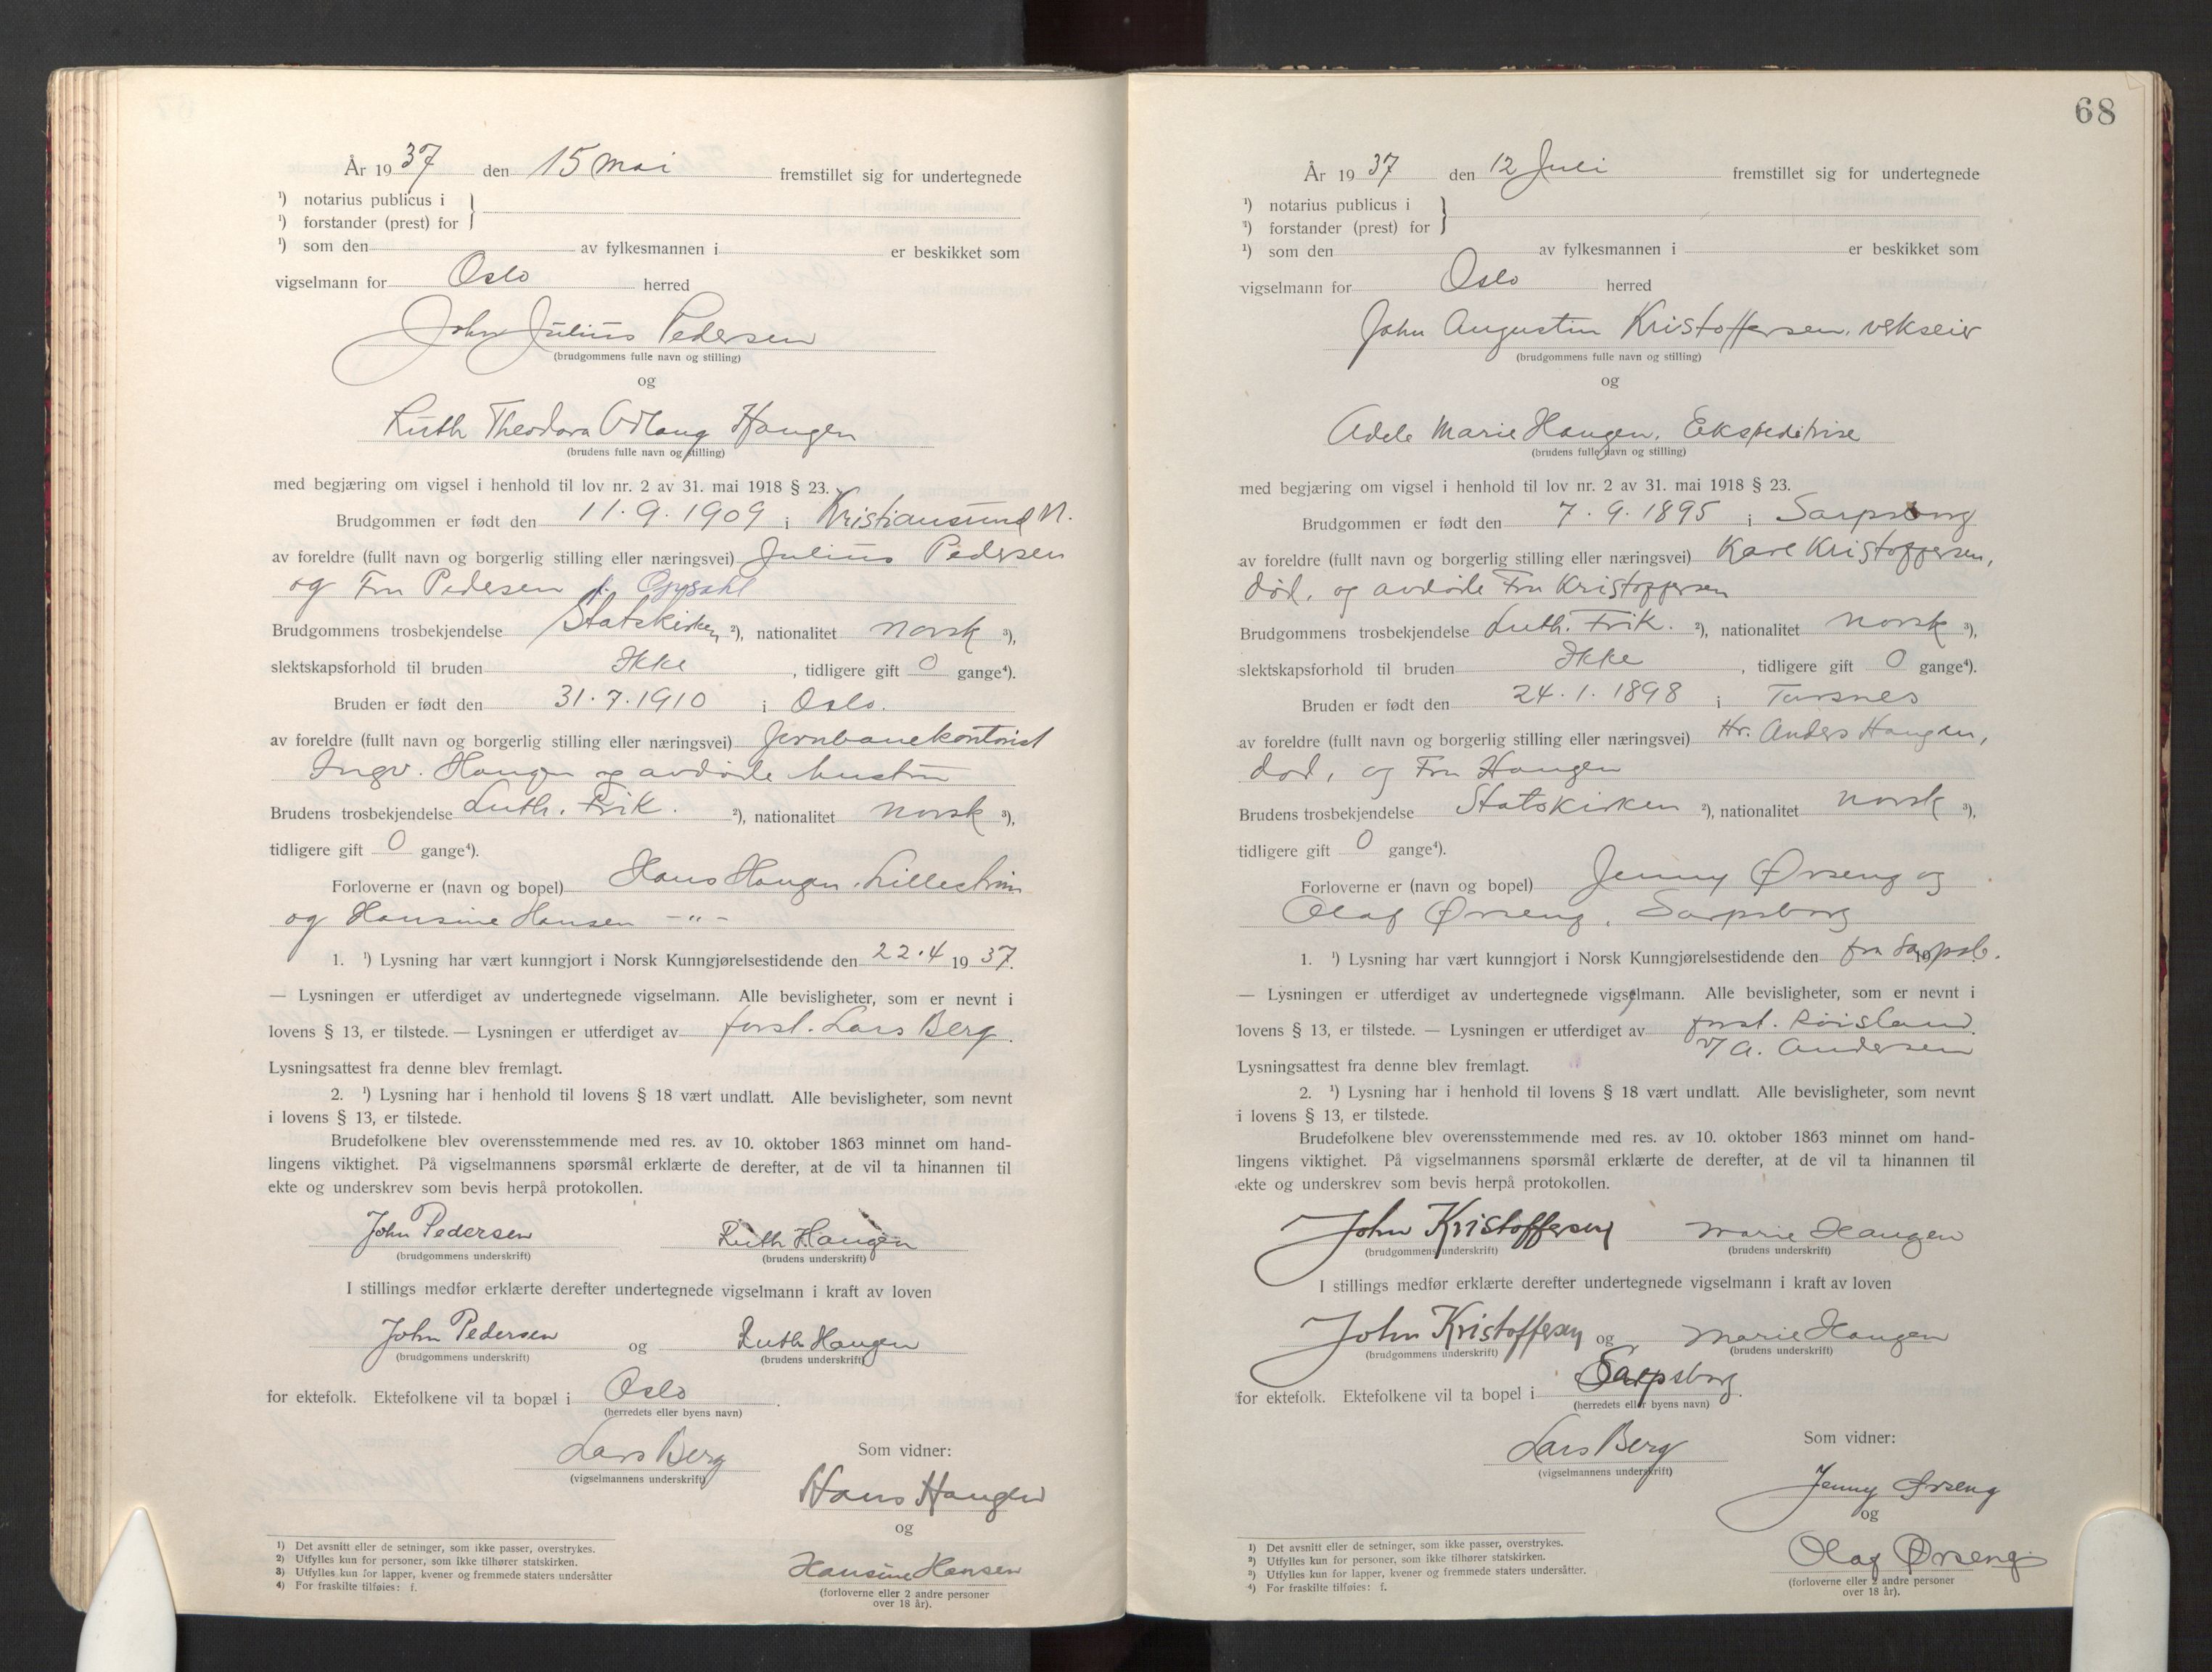 År 1937 den 15 mai fremstillet sig for undertegnede
¹) notarius publicus i
¹) forstander (prest) for
¹) som den av fylkesmannen i er beskikket som
vigselmann for Oslo herred
John Julius Pedersen
(brudgommens fulle navn og stilling)
og
Ruth Theodora Haugen
(brudens fulle navn og stilling)
med begjæring om vigsel i henhold til lov nr. 2 av 31. mai 1918 § 23.
Brudgommen er født den 11.9.1909 i Kristiansund N.
av foreldre (fullt navn og borgerlig stilling eller næringsvei) Julius Pedersen
og Fru Pedersen f. Opsahl
Brudgommens trosbekjendelse Statskirken ²), nationalitet norsk ³),
slektskapsforhold til bruden Ikke, tidligere gift 0 gange⁴).
Bruden er født den 31.7.1910 i Oslo.
av foreldre (fullt navn og borgerlig stilling eller næringsvei) Jernbanekontorist
Ingv. Haugen og avdøde hustru
Brudens trosbekjendelse Luth. Frik. ²), nationalitet norsk ³),
tidligere gift 0 gange⁴).
Forloverne er (navn og bopel) Hans Haugen, Lillestrøm
og Hansine Hansen -"-
1. ¹) Lysning har vært kunngjort i Norsk Kunngjørelsestidende den 22.4 1937.
— Lysningen er utferdiget av undertegnede vigselmann. Alle bevisligheter, som er nevnt i
lovens § 13, er tilstede. — Lysningen er utferdiget av forst. Lars Berg.
Lysningsattest fra denne blev fremlagt.
2. ¹) Lysning har i henhold til lovens § 18 vært undlatt. Alle bevisligheter, som nevnt
i lovens § 13, er tilstede.
Brudefolkene blev overensstemmende med res. av 10. oktober 1863 minnet om hand-
lingens viktighet. På vigselmannens spørsmål erklærte de derefter, at de vil ta hinannen til
ekte og underskrev som bevis herpå protokollen.
John Pedersen Ruth Haugen
(brudgommens underskrift) (brudens underskrift)
I stillings medfør erklærte derefter undertegnede vigselmann i kraft av loven
John Pedersen og Ruth Haugen
(brudgommens underskrift) (brudens underskrift)
for ektefolk. Ektefolkene vil ta bopæl i Oslo.
(herredets eller byens navn)
Lars Berg
(vigselmannens underskrift)
Som vidner:
Hans Haugen
og
Hansine Hansen
(forloverne eller 2 andre personer
over 18 år).
1) Det avsnitt eller de setninger, som ikke passer, overstrykes.
2) Utfylles kun for personer, som ikke tilhører statskirken.
3) Utfylles kun for lapper, kvener og fremmede staters undersåtter
4) For fraskilte tilføies: f.
68
År 1937 den 12 Juli fremstillet sig for undertegnede
¹) notarius publicus i
¹) forstander (prest) for
¹) som den av fylkesmannen i er beskikket som
vigselmann for Oslo herred
John Augustin Kristoffersen, vekseier
(brudgommens fulle navn og stilling)
og
Adele Marie Haugen, Ekspeditrise
(brudens fulle navn og stilling)
med begjæring om vigsel i henhold til lov nr. 2 av 31. mai 1918 § 23.
Brudgommen er født den 7.9.1895 i Sarpsborg
av foreldre (fullt navn og borgerlig stilling eller næringsvei) Karl Kristoffersen,
død, og avdøde Fru Kristoffersen
Brudgommens trosbekjendelse Luth. Frik. ²), nationalitet norsk ³),
slektskapsforhold til bruden Ikke, tidligere gift 0 gange⁴).
Bruden er født den 24.1.1898 i Tursnes
av foreldre (fullt navn og borgerlig stilling eller næringsvei) Hr. Anders Haugen,
død, og Fru Haugen
Brudens trosbekjendelse Statskirken ²), nationalitet norsk ³),
tidligere gift 0 gange⁴).
Forloverne er (navn og bopel) Jenny Ørseng og
Olaf Ørseng, Sarpsborg
1. ¹) Lysning har vært kunngjort i Norsk Kunngjørelsestidende den fra Sarpsb.
— Lysningen er utferdiget av undertegnede vigselmann. Alle bevisligheter, som er nevnt i
lovens § 13, er tilstede. — Lysningen er utferdiget av forst. Røisland.
v/ A. Andersen
Lysningsattest fra denne blev fremlagt.
2. ¹) Lysning har i henhold til lovens § 18 vært undlatt. Alle bevisligheter, som nevnt
i lovens § 13, er tilstede.
Brudefolkene blev overensstemmende med res. av 10. oktober 1863 minnet om hand-
lingens viktighet. På vigselmannens spørsmål erklærte de derefter, at de vil ta hinannen til
ekte og underskrev som bevis herpå protokollen.
John Kristoffersen Marie Haugen
(brudgommens underskrift) (brudens underskrift)
I stillings medfør erklærte derefter undertegnede vigselmann i kraft av loven
John Kristoffersen og Marie Haugen
(brudgommens underskrift) (brudens underskrift)
for ektefolk. Ektefolkene vil ta bopel i Sarpsborg.
(herredets eller byens navn)
Lars Berg
(vigselmannens underskrift)
Som vidner:
Jenny Ørseng
og
Olaf Ørseng
(forloverne eller 2 andre personer
over 18 år).
1) Det avsnitt eller de setninger, som ikke passer, overstrykes.
2) Utfylles kun for personer, som ikke tilhører statskirken.
3) Utfylles kun for lapper, kvener og fremmede staters undersåtter.
4) For fraskilte tilføies: f.